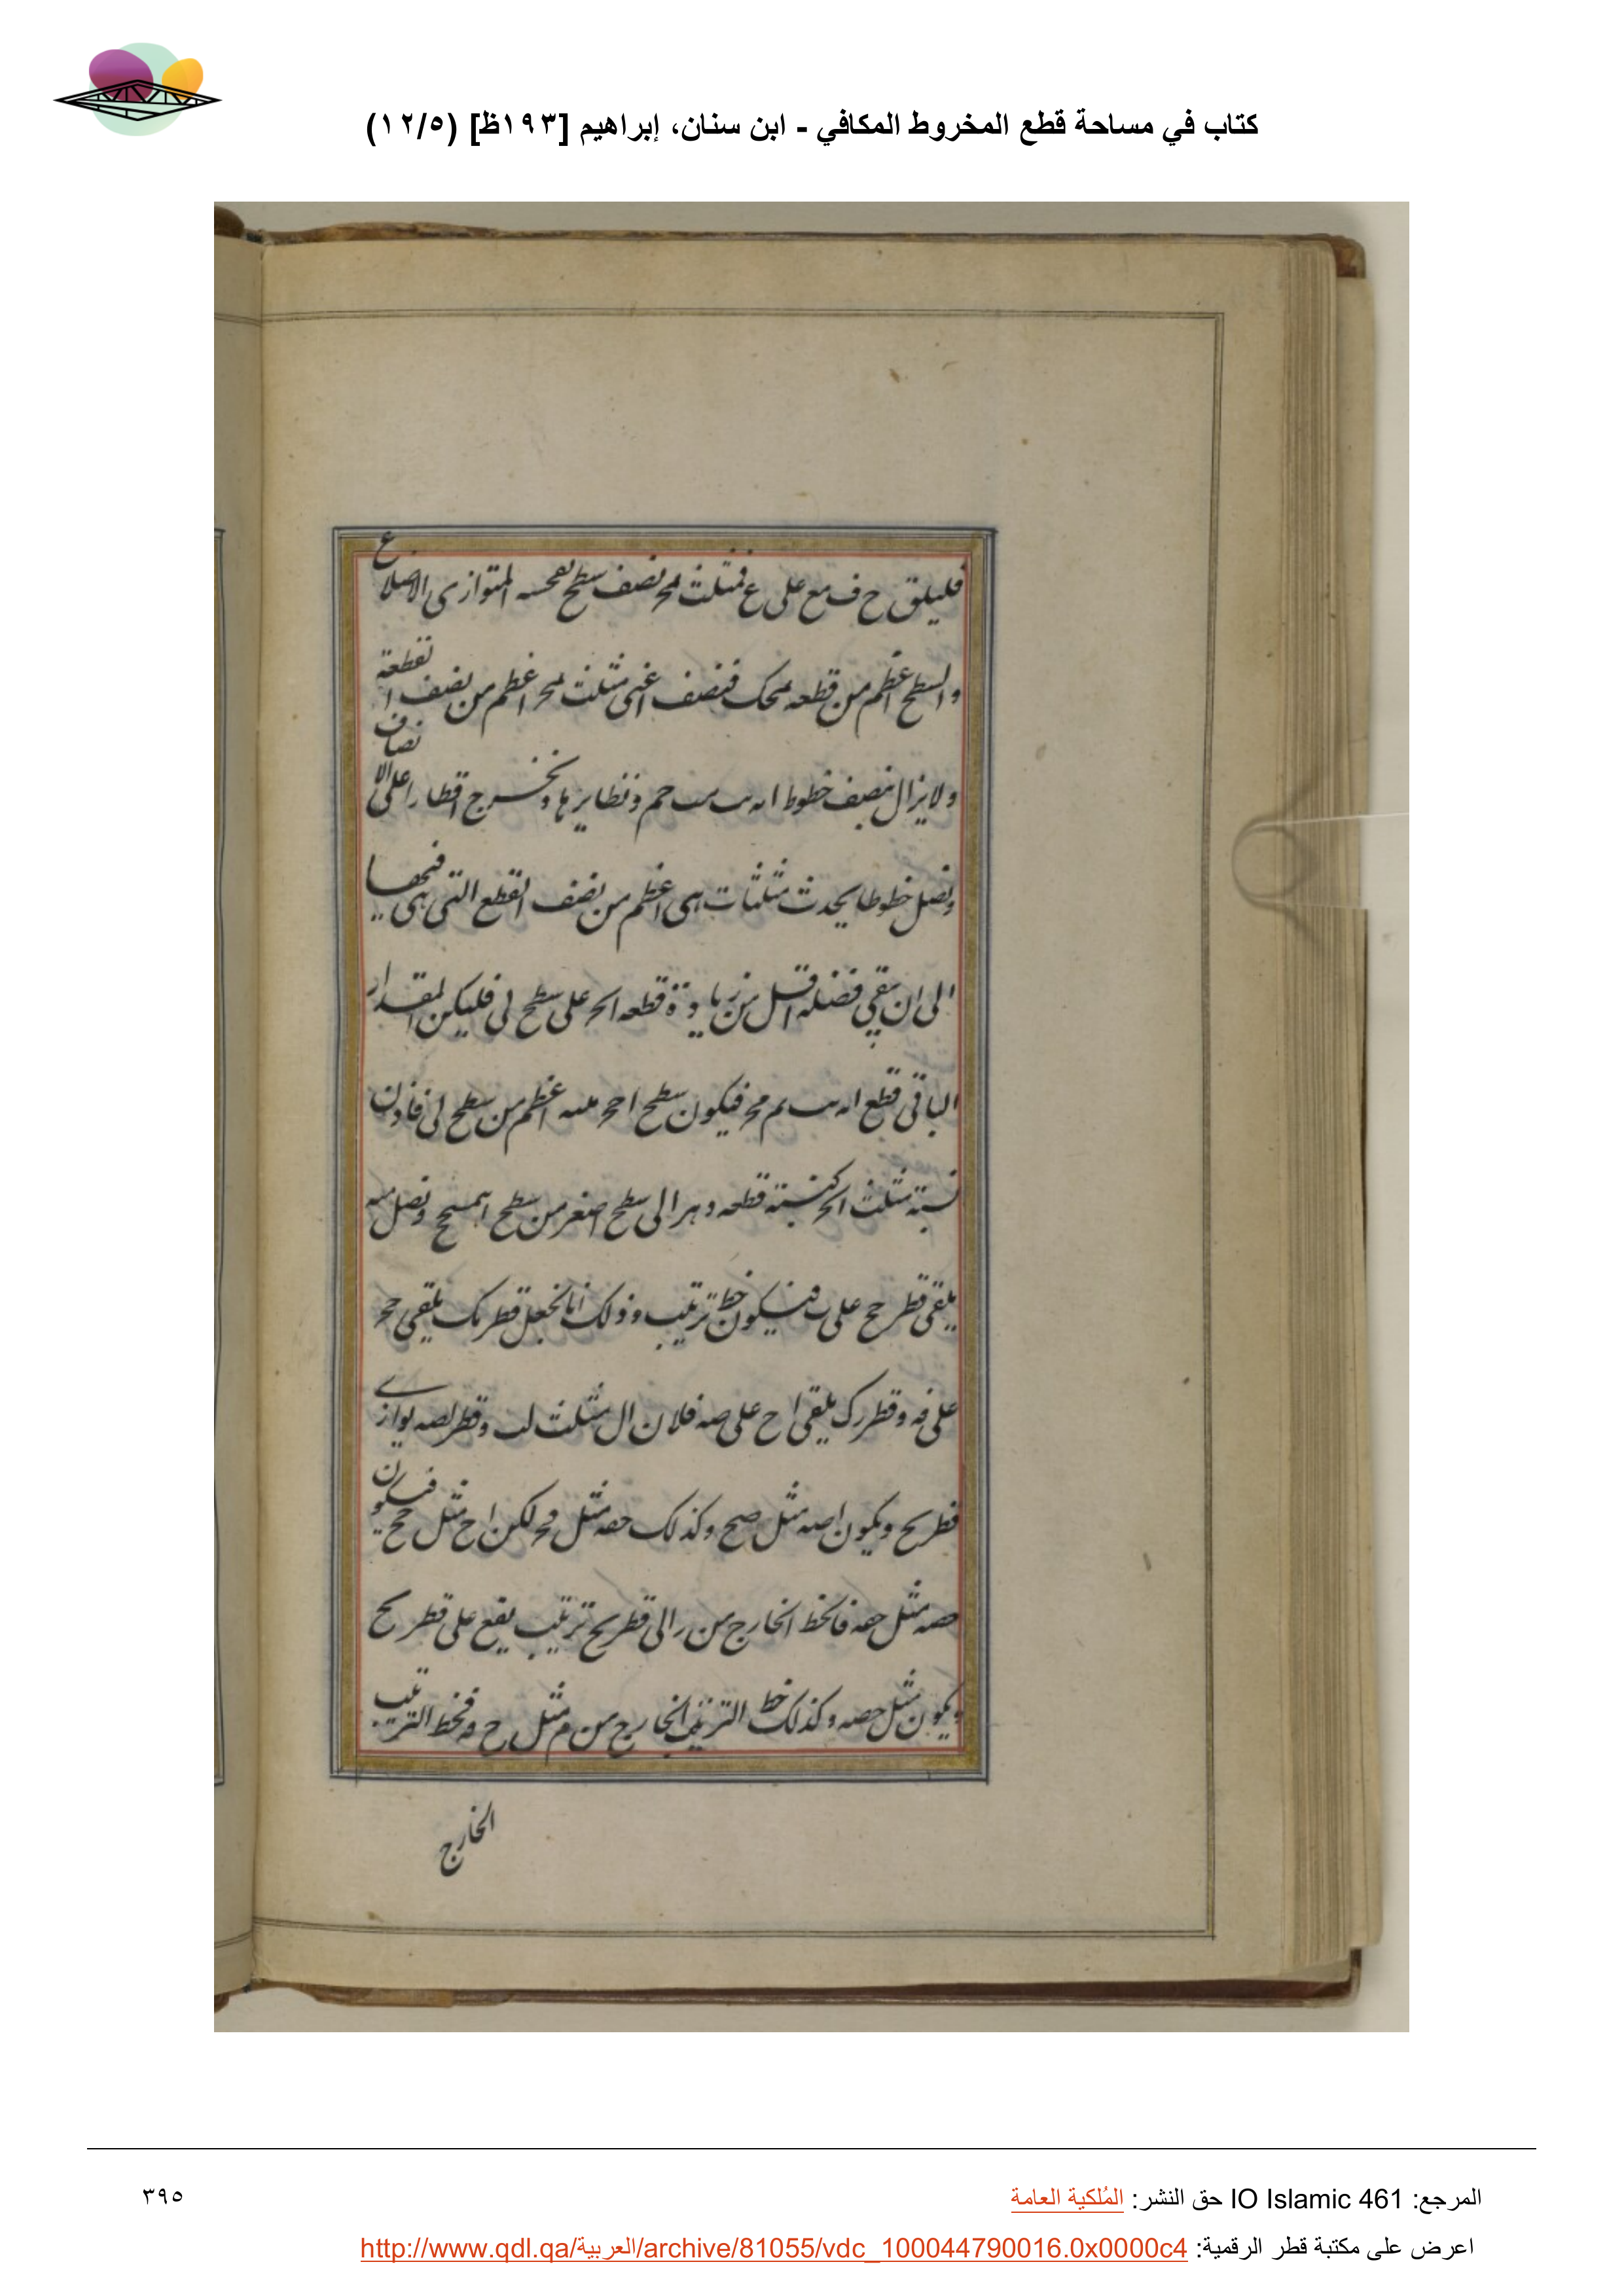 كتاب في مساحة قطع المخروط المكافي - ابن سنان، إبراهيم [١٩٣ظ] (١٢/٥)
فليلق ح ف مع على ع فمثلث نصف سطح المتوازى الاضلاع
والسطح اعظم من قطعه فنصف اعنى مثلث اعظم من نصف القطعة
ولا يزال ننصف خطوط ونظايرها ونخرج اقطارا على الانصاف
ونصل خطوطا يحدث مثلثات هى اعظم من نصف القطع التى هى فيها
الى ان يبقى فضله اقل من زيادة قطعه على سطح لى فليكن المقدار
الباقى قطع فيكون سطح اعظم من سطح لى فاذن
نسبة مثلث كنسبة قطعه الى سطح اصغر من سطح ونصل
يلقى قطر على فيكون خط ترتيب وذلك انا نجعل قطر يلقى
على فه وقطر رك يلقى اح على صه فلان ال مثل لب وقطر لصه يوازي
قطر بح ويكون اصه مثل صح وكذلك حفه مثل لكن اح مثل فيكون
حصه مثل حفه فالخط الخارج من ر الى قطر بح ترتيب يقع على قطر بح
ويكون مثل حصه وكذلك خط الترتيب الخارج من م مثل ح فه فخط الترتيب
الخارج
المرجع: IO Islamic 461 حق النشر: المُلكية العامة
٣٩٥
اعرض على مكتبة قطر الرقمية: http://www.qdl.qa/العربية/archive/81055/vdc_100044790016.0x0000c4